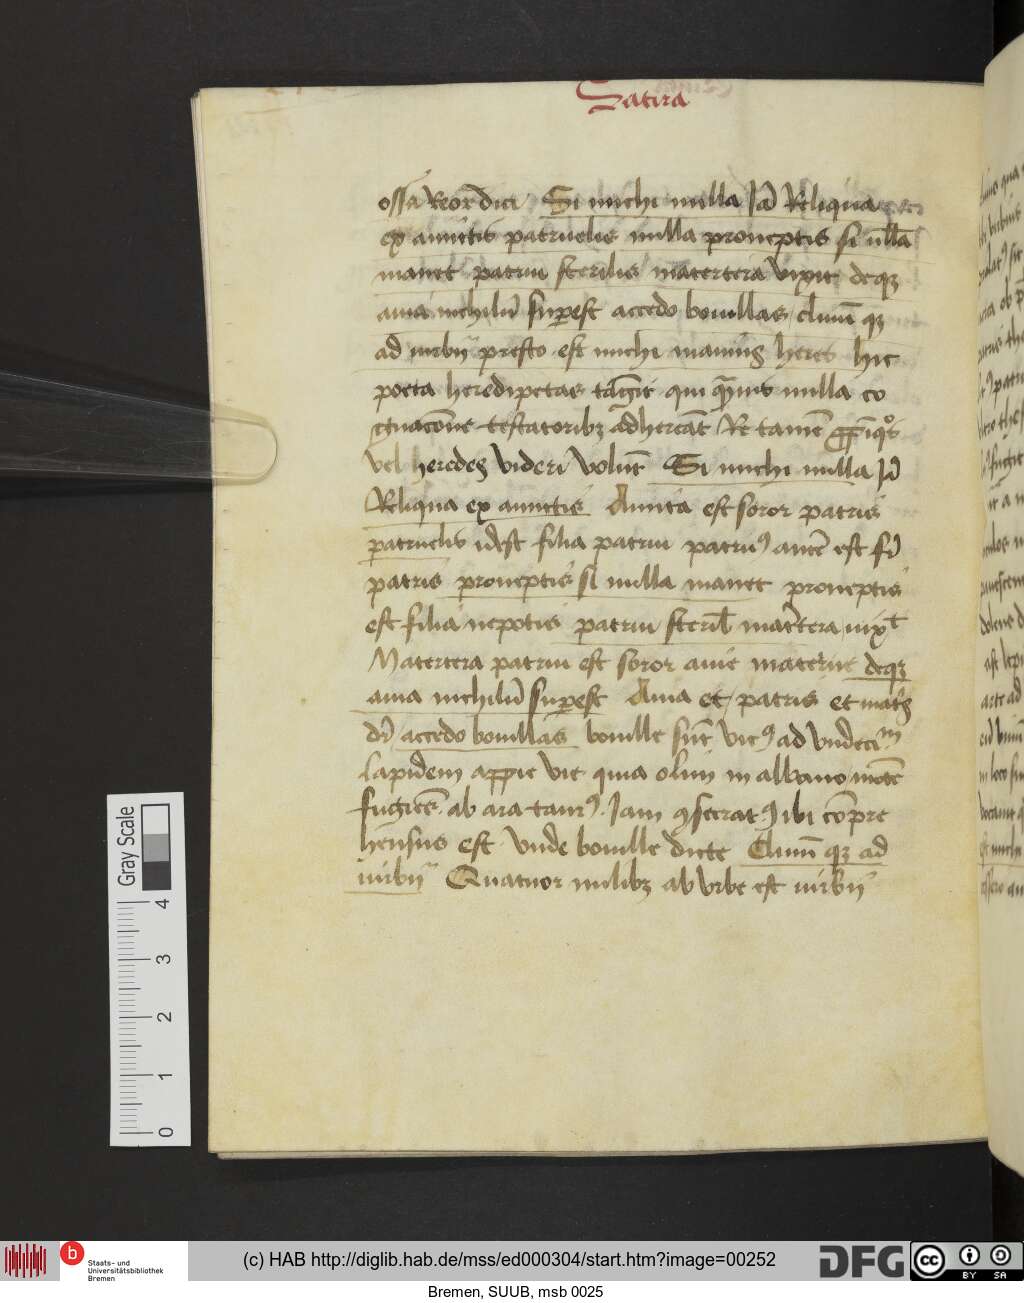 Satira
ossa Reor dici Si michi nulla Jā Reliqua
ex amitis patruelis nulla proneptis si ulla
manet patrui sterilis matertera vixit deqȝ
auia nichilū supest accedo bouillas cliuū qȝ
ad virbij presto est michi manius heres hic
poeta heredipetas tāgit qui qāuis nulla co
gnacōne testatoribȝ adhereāt Re tamē
vel heredes videri volūt Si michi nulla Jā
Reliqua ex amitis Amita est soror patris
patruelis idest filia patrui patruꝰ autē est fr̄
patris proneptis si nulla manet proneptis
est filia nepotis patrui steril̄ mat̄tera uixt
Matertera patrui est soror auie materne deqȝ
auia nichilū supest Auia et patris et mat̄s
dr̄ accedo bouillas bouille sūt vicꝰ ad vndecim
lapidem appie vie quia olim in albano mōte
fugiēs ab ara taurꝰ Jam ꝯsecratꝰ ibi cōpre
hensus est vnde bouille dicte Cliuū qȝ ad
virbij Quatuor milibȝ ab vrbe est virbij
Gray Scale
0 1 2 3 4
b Staats- und
Universitätsbibliothek
Bremen
(c) HAB http://diglib.hab.de/mss/ed000304/start.htm?image=00252
DFG
cc BY SA
Bremen, SUUB, msb 0025